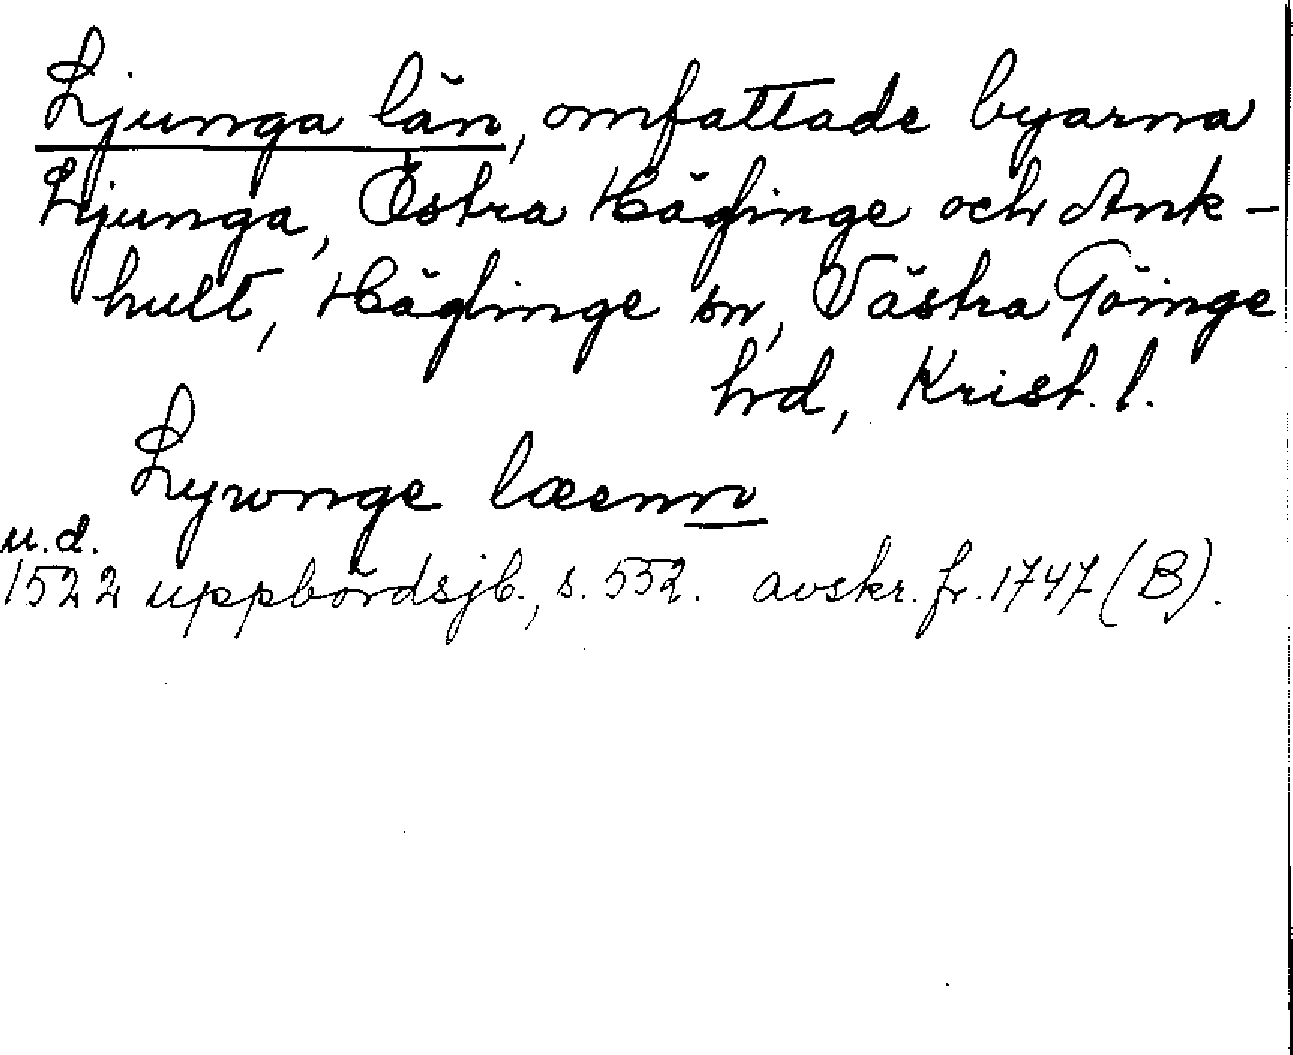 Ljunga län, omfattade byarna
Ljunga, Östra Häglinge och Ank-
hult, Häglinge sn, Västra Göinge
hrd, Krist. l.
Lywnge læenn
u.d.
1522 uppbördsjb., s. 552. avskr. fr. 1747 (B).